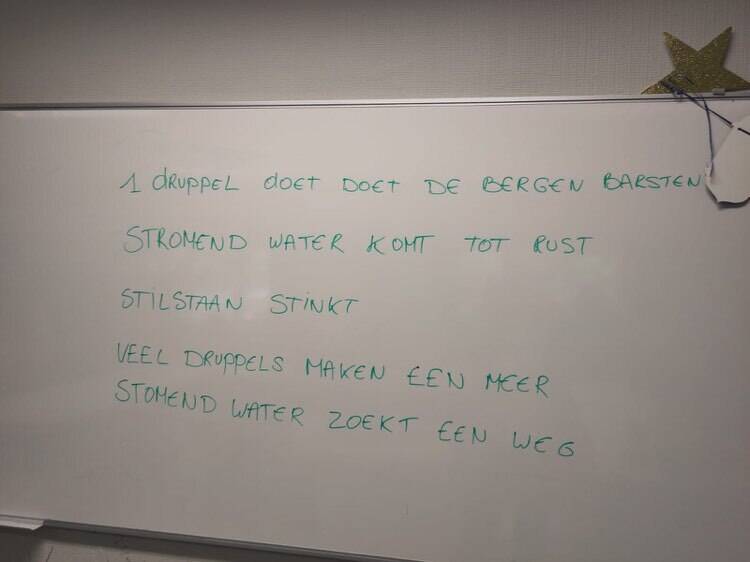 1 druppel doet DOET DE BERGEN BARSTEN
STROMEND WATER KOMT TOT RUST
STILSTAAN STINKT
VEEL DRUPPELS MAKEN EEN MEER
STOMEND WATER ZOEKT EEN WEG